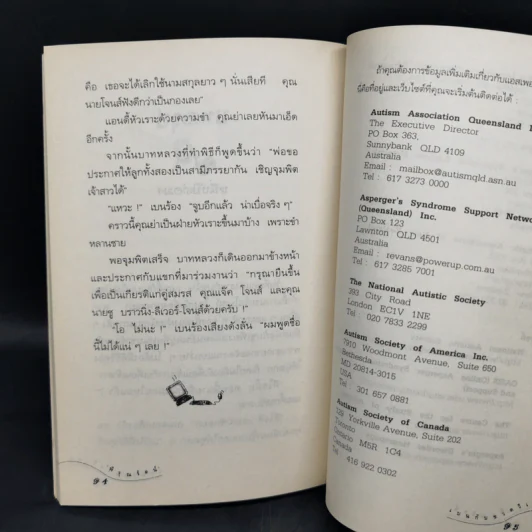 คือ เธอจะได้เลิกใช้นามสกุลยาว ๆ นั่นเสียที คุณ
นายโจนส์ฟังดีกว่าเป็นกองเลย"
แอนดี้หัวเราะด้วยความขำ คุณย่าเลยหันมาเอ็ด
อีกครั้ง
จากนั้นบาทหลวงที่ทำพิธีก็พูดขึ้นว่า "พ่อขอ
ประกาศให้ลูกทั้งสองเป็นสามีภรรยากัน เชิญจุมพิต
เจ้าสาวได้"
"แหวะ !" เบนร้อง "จูบอีกแล้ว น่าเบื่อจริง ๆ"
คราวนี้คุณย่าเป็นฝ่ายหัวเราะขึ้นมาบ้าง เพราะขำ
หลานชาย
พอจุมพิตเสร็จ บาทหลวงก็เดินออกมาข้างหน้า
และประกาศกับแขกที่มาร่วมงานว่า "กรุณายืนขึ้น
เพื่อเป็นเกียรติแก่คู่สมรส คุณแจ๊ค โจนส์ และคุณ
นายซู บราวนิ่ง-ลีเวอร์-โจนส์ด้วยครับ !"
"โอ ไม่นะ !" เบนร้องเสียงดังลั่น "ผมพูดชื่อ
นี้ไม่ได้แน่ ๆ เลย !"
๙๔
ถ้าคุณต้องการข้อมูลเพิ่มเติมเกี่ยวกับ
นี่คือที่อยู่และเว็บไซต์ที่คุณจะเริ่มต้นติดต่อได้ :
Autism Association Queensland
The Executive Director
PO Box 363,
Sunnybank QLD 4109
Australia
Email : mailbox@autismqld.asn.au
Tel : 617 3273 0000
Asperger's Syndrome Support
(Queensland) Inc.
PO Box 123
Lawnton QLD 4501
Australia
Email : revans@powerup.com.au
Tel : 617 3285 7001
The National Autistic Society
393 City Road
London EC1V 1NE
Tel : 020 7833 2299
Autism Society of America Inc.
7910 Woodmont Avenue, Suite 650
Bethseda
MD 20814-3015
USA
Tel : 301 657 0881
Autism Society of Canada
129 Yorkville Avenue, Suite 202
Toronto
Ontario M5R 1C4
Canada
Tel : 416 922 0302
๙๕